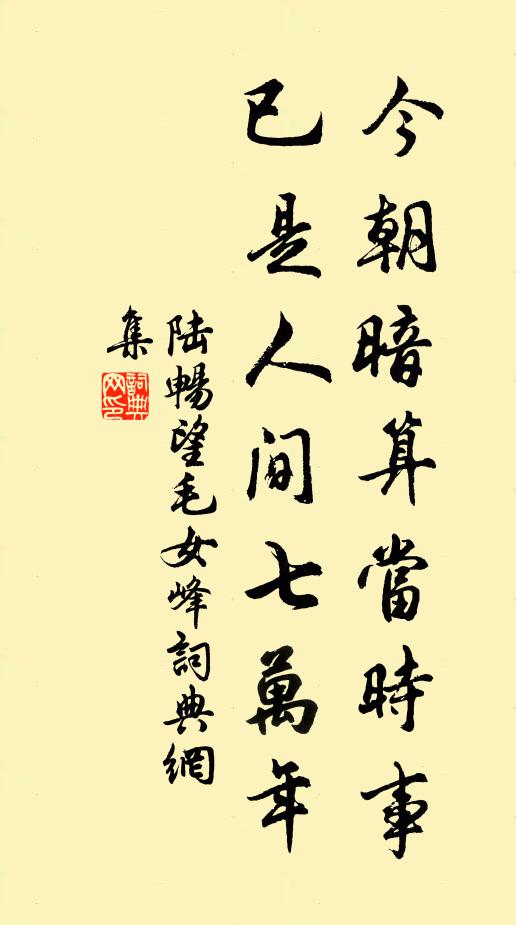 今朝暗算當時事
已是人間七萬年
陸暢望毛女峰詞典網
集
詞典
网印